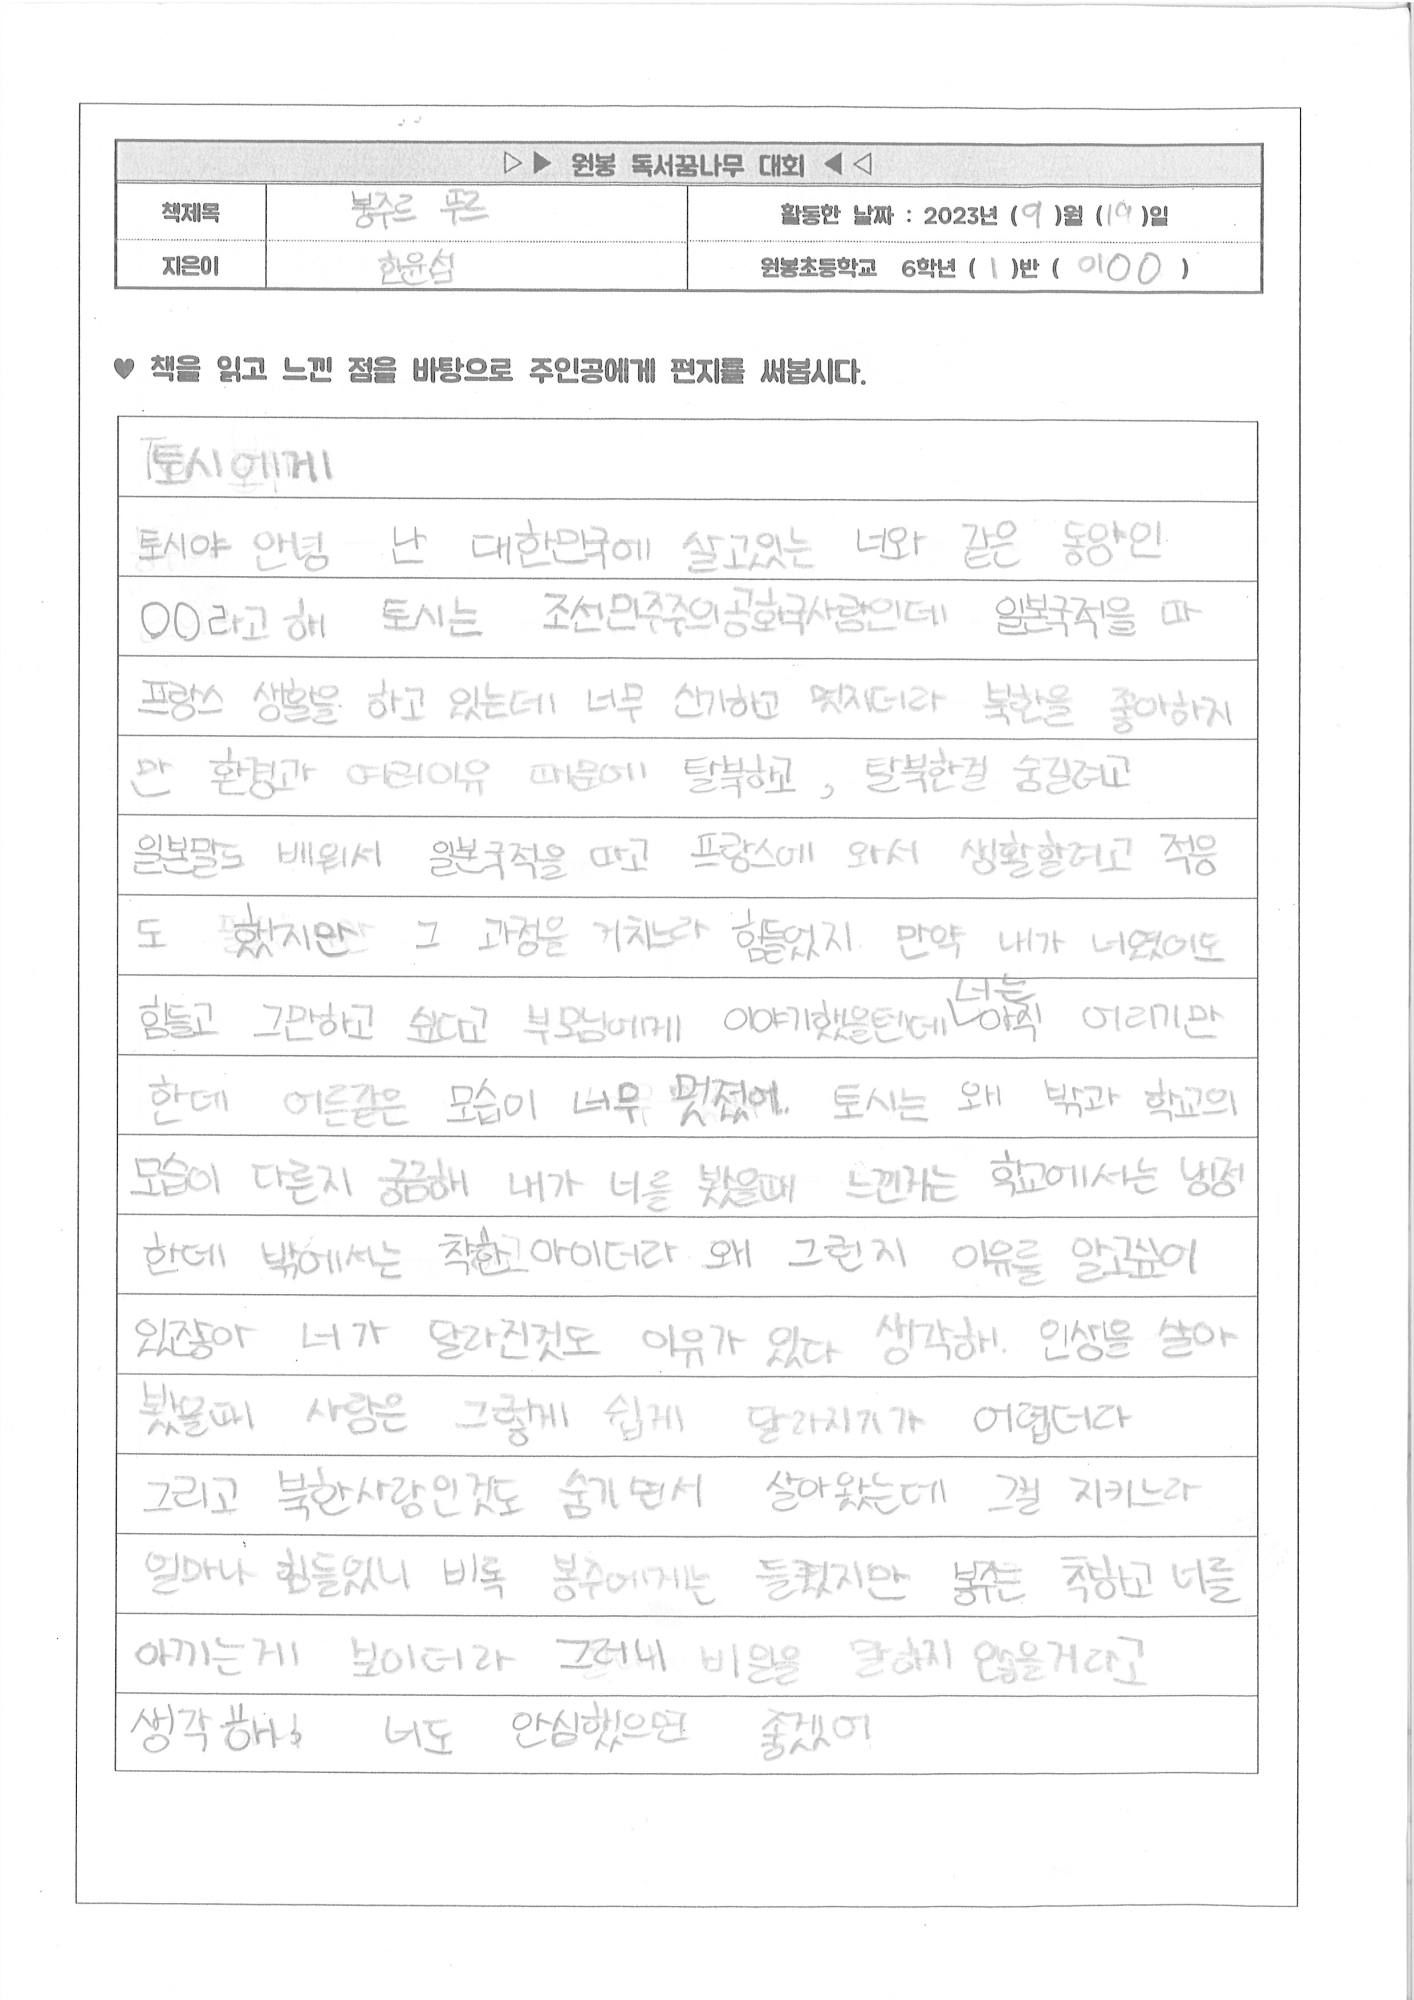 ▷▶ 원봉 독서꿈나무 대회 ◀◁
책제목 봉주르 뚜르 활동한 날짜 : 2023년 (9)월 (19)일
지은이 한윤섭 원봉초등학교 6학년 (1)반 (이00)
♥ 책을 읽고 느낀 점을 바탕으로 주인공에게 편지를 써봅시다.
토시에게
토시야 안녕 난 대한민국에 살고있는 너와 같은 동양인
00라고 해 토시는 조선민주주의공화국사람인데 일본국적을 따
프랑스 생활을 하고 있는데 너무 신기하고 멋지더라 북한을 좋아하지
만 환경과 여러이유 때문에 탈북하고, 탈북한걸 숨길려고
일본말도 배워서 일본국적을 따고 프랑스에 와서 생활할려고 적응
도 했지만 그 과정을 거치느라 힘들었지. 만약 내가 너였어도
힘들고 그만하고 싶다고 부모님에게 이야기했을텐데 너는 아직 어리기만
한데 어른같은 모습이 너무 멋졌어. 토시는 왜 밖과 학교의
모습이 다른지 궁금해 내가 너를 봤을때 느낀자는 학교에서는 냉정
한데 밖에서는 착한 아이더라 왜 그런지 이유를 알고싶어
있잖아 너가 달라진것도 이유가 있다 생각해. 인생을 살아
봤을때 사람은 그렇게 쉽게 달라지기가 어렵더라
그리고 북한사람인것도 숨기면서 살아왔는데 그걸 지키느라
얼마나 힘들었니 비록 봉주에게는 들켰지만 봉주는 착하고 너를
아끼는게 보이더라 그러니 비밀을 말하지 않을거라고
생각해 너도 안심했으면 좋겠어